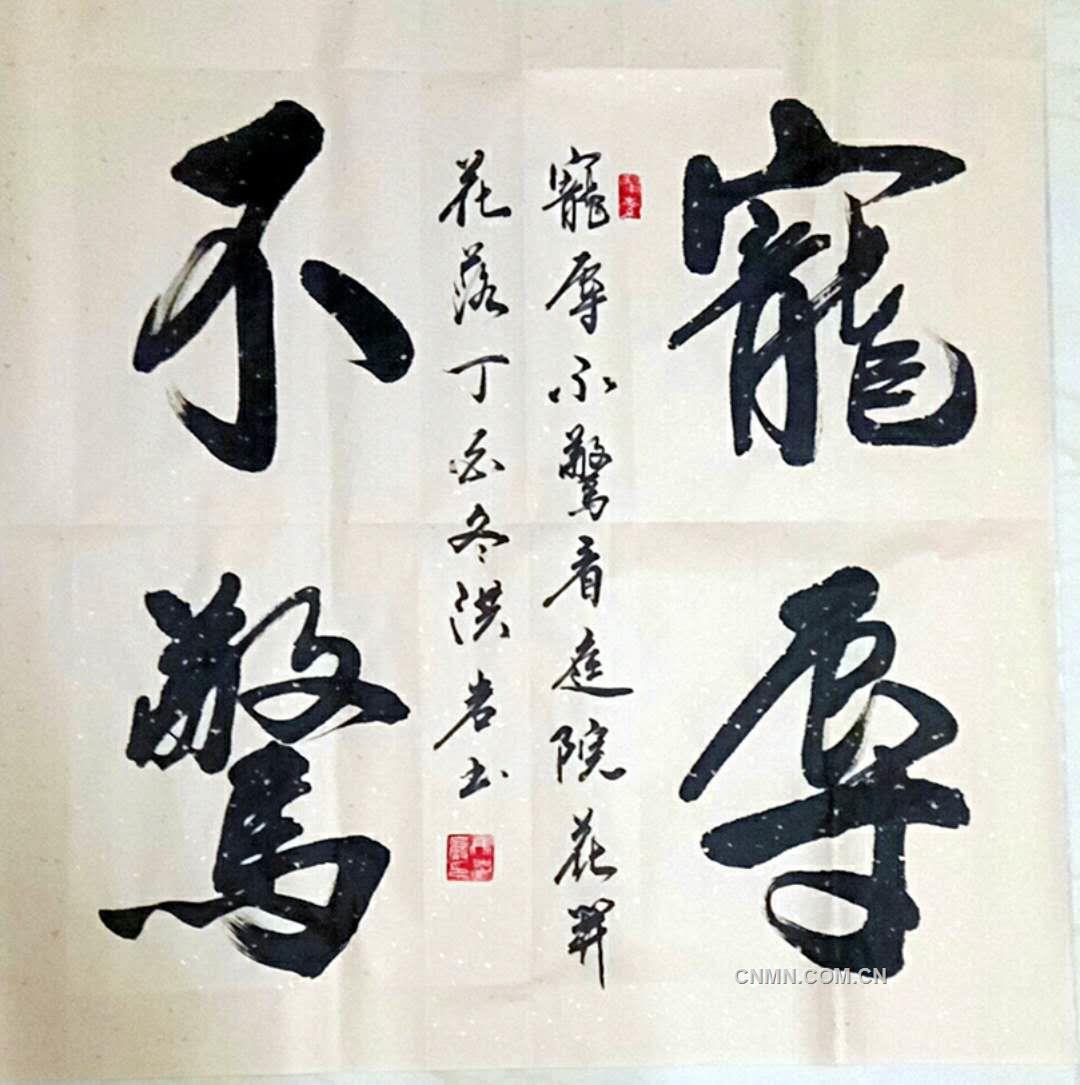 寵辱
不驚
寵辱不驚看庭院花開
花落丁酉冬洪岩书
CNMN.COM.CN